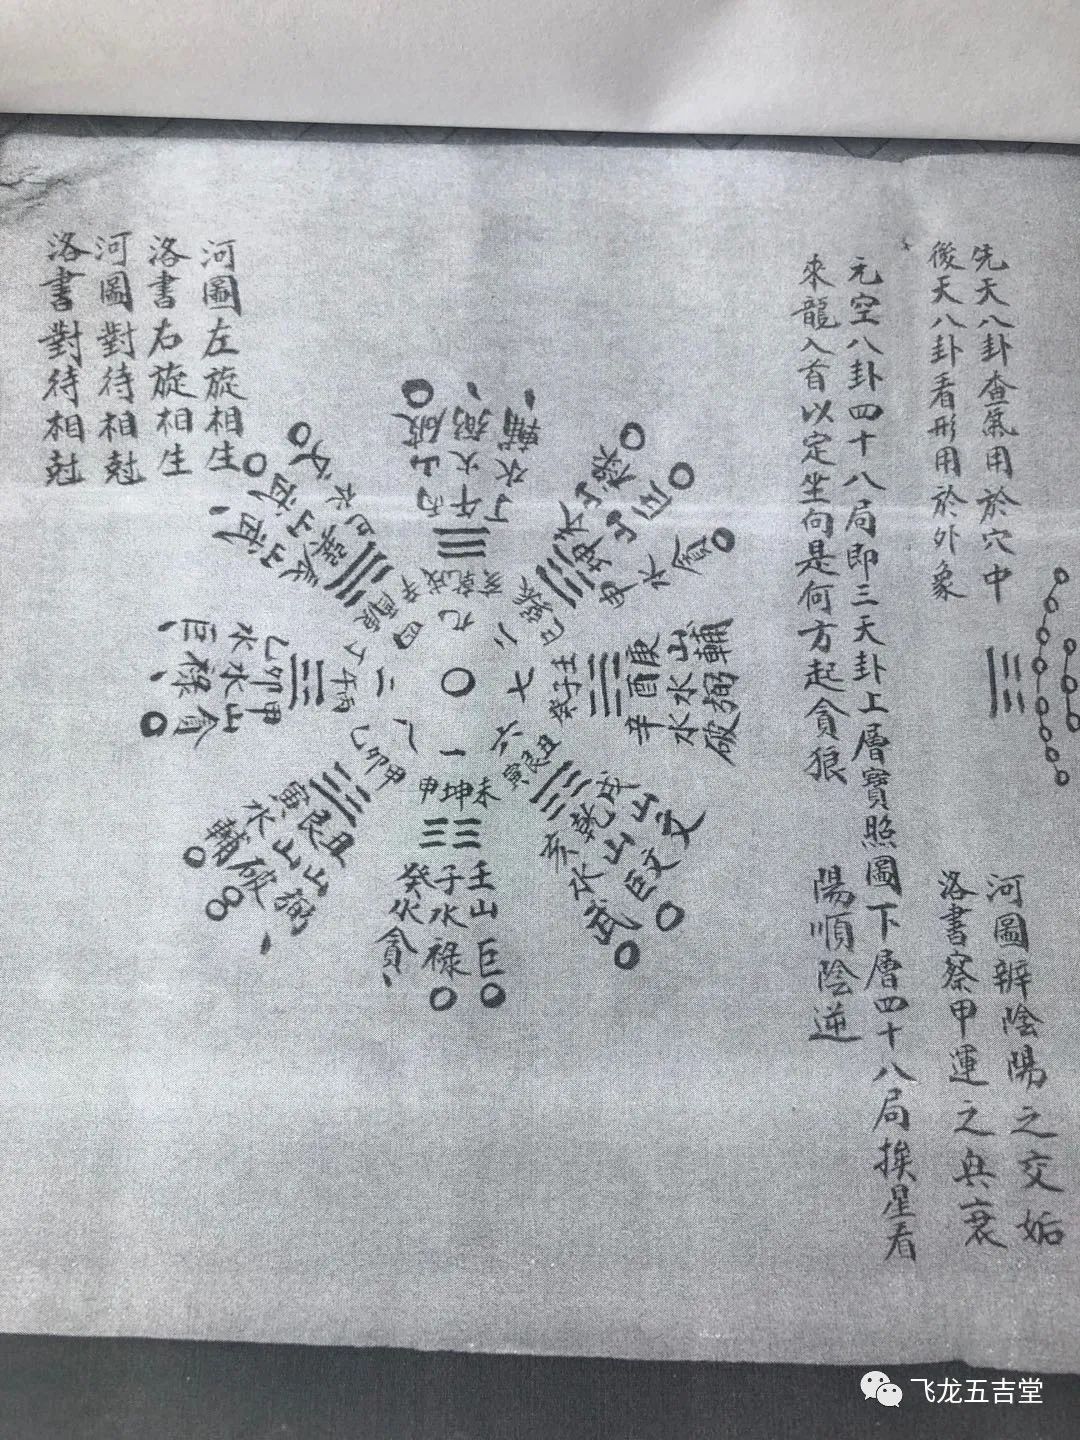 先天八卦查氣用於穴中
後天八卦看形用於外象
河圖辨陰陽之交姤
洛書察甲運之興衰
元空八卦四十八局即三天卦上層寶照圖下層四十八局挨星看
來龍入首以定坐向是何方起貪狼
陽順陰逆
河圖左旋相生
洛書右旋相生
河圖對待相尅
洛書對待相尅
破弼輔
山火水
丙午丁
戌乾亥
九
二
七
六
一
四
庚酉辛
山水水
輔弼破
壬子癸
丑艮寅
戌乾亥
山山水
文巨武
未坤申
壬子癸
山水水
巨祿貪
甲卯乙
丑艮寅
山山水
弼破輔
丙午丁
甲卯乙
山水水
貪祿巨
飞龙五吉堂